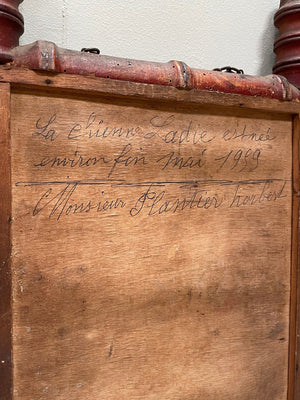 La chienne Ladie est née
environ fin Mai 1989
Monsieur Plantier Norbert